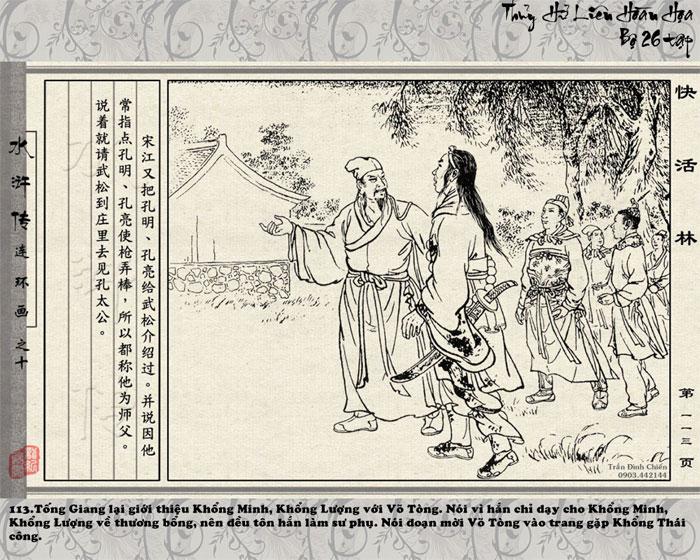 Thủy Hử Liên Hoàn Họa
Bộ 26 tập
快活林
宋江又把孔明、孔亮给武松介绍过。并说因他
常指点孔明、孔亮使枪弄棒，所以都称他为师父。
说着就请武松到庄里去见孔太公。
水浒传连环画之十
第一一三页
Trần Đình Chiến
0903.442144
113.Tống Giang lại giới thiệu Khổng Minh, Khổng Lượng với Võ Tòng. Nói vì hắn chỉ dạy cho Khổng Minh,
Khổng Lượng về thương bổng, nên đều tôn hắn làm sư phụ. Nói đoạn mời Võ Tòng vào trang gặp Khổng Thái
công.